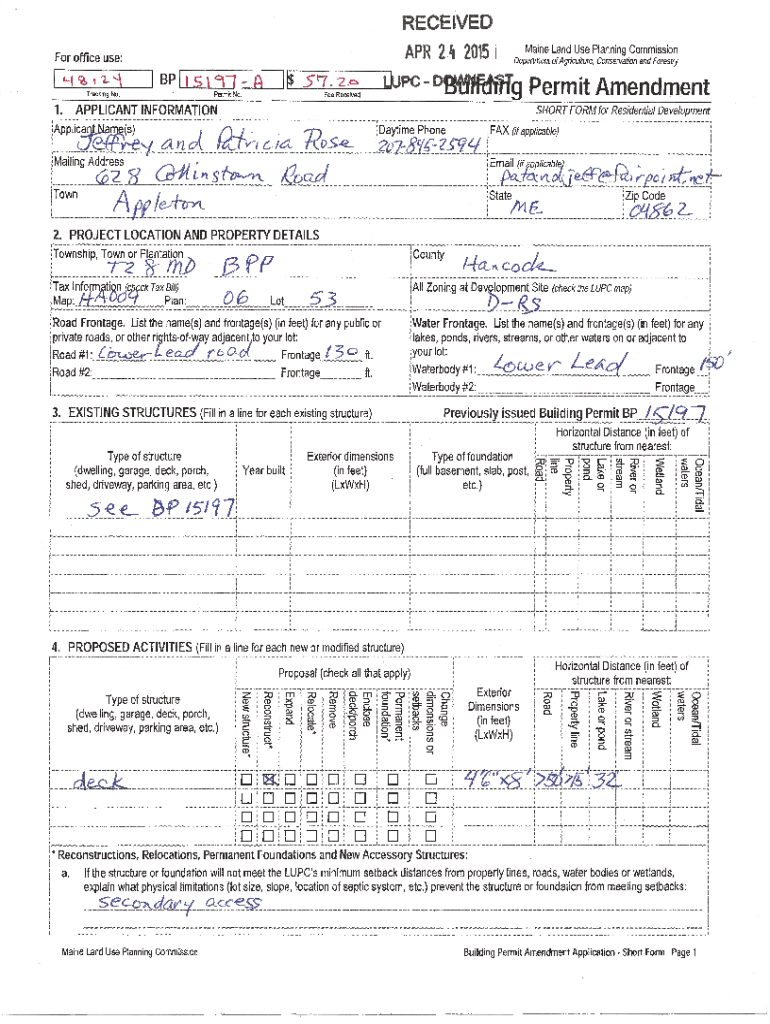 RECEIVED
APR 24 2015
LUPC - DOWNEAST
Maine Land Use Planning Commission
Department of Agriculture, Conservation and Forestry
For office use:
48124 BP 15197-A $ 57.20
Tracking No. Permit No. Fee Received
Building Permit Amendment
1. APPLICANT INFORMATION SHORT FORM for Residential Development
Applicant Name(s) Jeffrey and Patricia Rose
Daytime Phone 207-845-2594
FAX (if applicable)
Mailing Address 628 Collinstown Road
Email (if applicable) patandjeff@fairpoint.net
Town Appleton
State ME
Zip Code 04862
2. PROJECT LOCATION AND PROPERTY DETAILS
Township, Town or Plantation T28 MD BPP
County Hancock
Tax Information (check Tax Bill)
Map: HA004 Plan: 06 Lot 53
All Zoning at Development Site (check the LUPC map)
D-RS
Road Frontage. List the name(s) and frontage(s) (in feet) for any public or
private roads, or other rights-of-way adjacent to your lot:
Road #1: Lower Lead road Frontage 130 ft.
Road #2: Frontage ft.
Water Frontage. List the name(s) and frontage(s) (in feet) for any
lakes, ponds, rivers, streams, or other waters on or adjacent to
your lot:
Waterbody #1: Lower Lead Frontage 150'
Waterbody #2: Frontage
3. EXISTING STRUCTURES (Fill in a line for each existing structure) Previously issued Building Permit BP 15197
Type of structure
(dwelling, garage, deck, porch,
shed, driveway, parking area, etc.)
Year built
Exterior dimensions
(in feet)
(LxWxH)
Type of foundation
(full basement, slab, post,
etc.)
Horizontal Distance (in feet) of
structure from nearest:
Road
Property line
Lake or pond
River or stream
Wetland
Ocean/Tidal waters
See BP 15197
4. PROPOSED ACTIVITIES (Fill in a line for each new or modified structure)
Type of structure
(dwelling, garage, deck, porch,
shed, driveway, parking area, etc.)
Proposal (check all that apply)
New structure*
Reconstruct*
Expand
Relocate*
Remove
Enclose deck/porch
Permanent foundation*
Change dimensions or setbacks
Exterior
Dimensions
(in feet)
(LxWxH)
Horizontal Distance (in feet) of
structure from nearest:
Road
Property line
Lake or pond
River or stream
Wetland
Ocean/Tidal waters
deck 4'6"x8' >50' >15' 32
* Reconstructions, Relocations, Permanent Foundations and New Accessory Structures:
a. If the structure or foundation will not meet the LUPC's minimum setback distances from property lines, roads, water bodies or wetlands,
explain what physical limitations (lot size, slope, location of septic system, etc.) prevent the structure or foundation from meeting setbacks:
secondary access
Maine Land Use Planning Commission Building Permit Amendment Application - Short Form Page 1